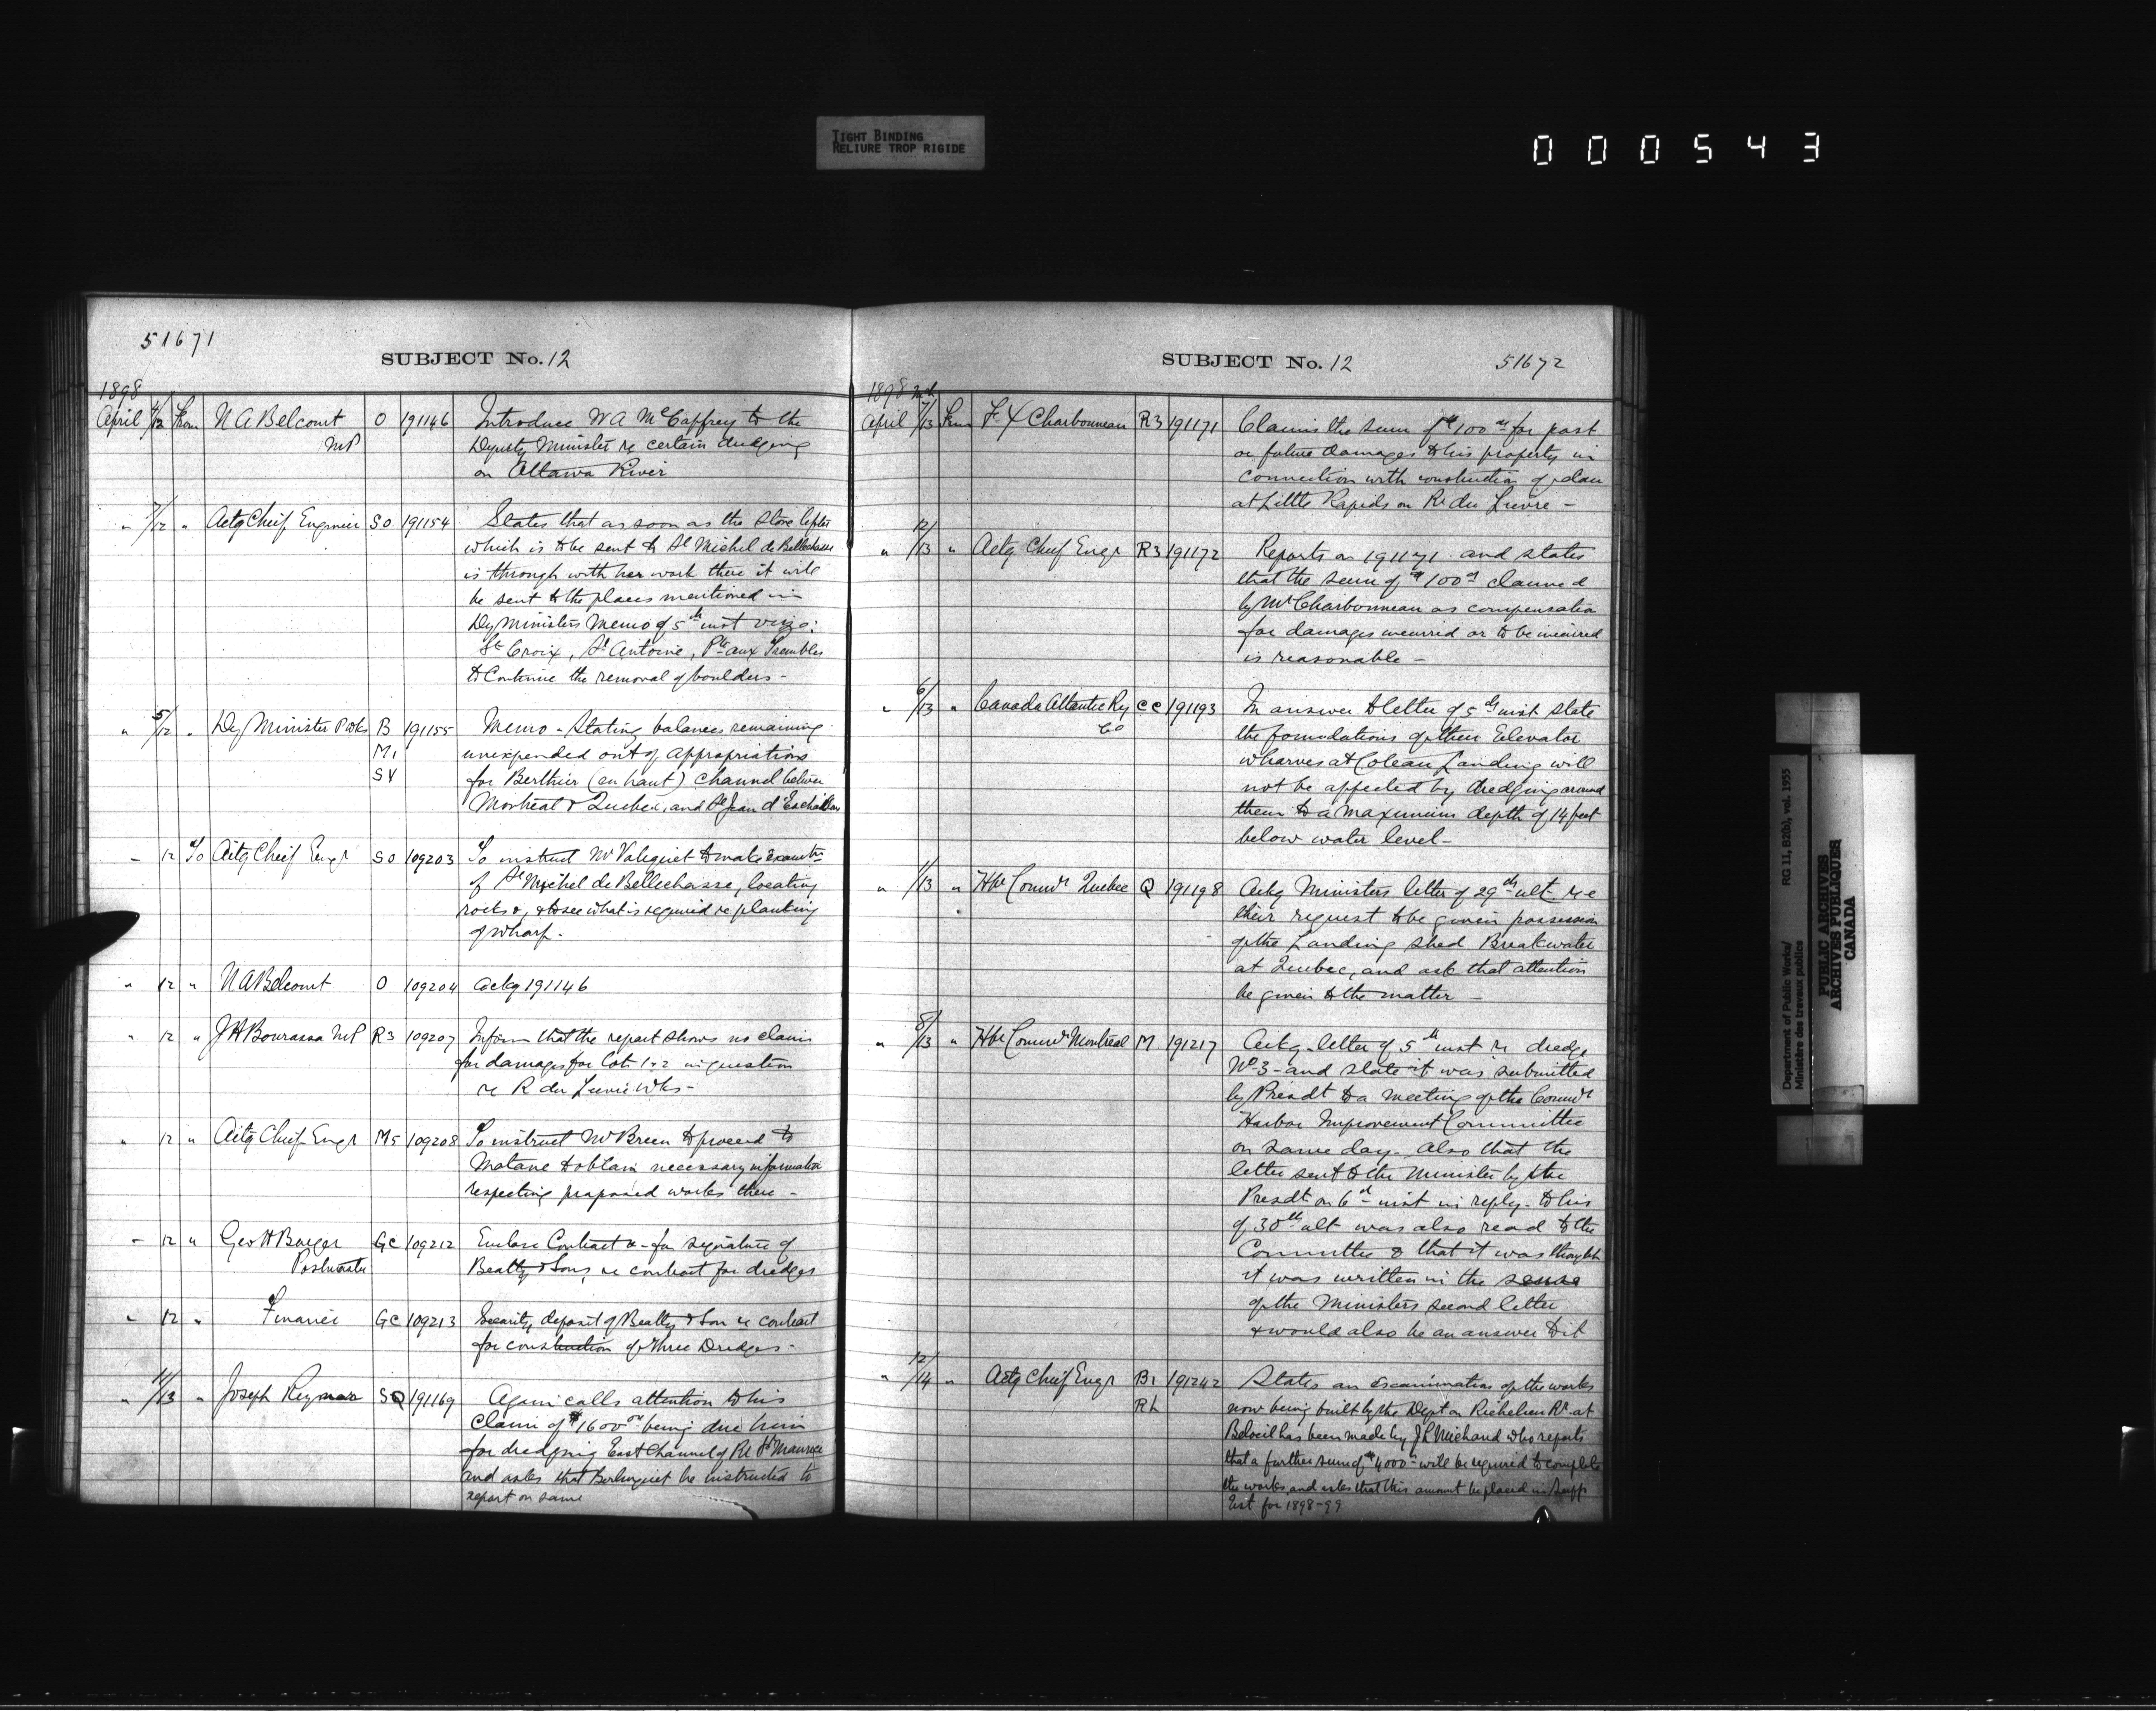 TIGHT BINDING
RELIURE TROP RIGIDE
000543
51671
SUBJECT No. 12
1898
April 7/12 From N A Belcourt O 191146 Introduce W A McCaffrey to the
MP Deputy Minister re certain dredging
on Ottawa River
" 7/12 " Actg Chief Engineer SO 191154 States that as soon as the stone lifter
which is to be sent to St Michel de Bellechasse
is through with her work there it will
be sent to the places mentioned in
Dy Ministers Memo of 5th inst vizo:
St Croix, St Antoine, Pte aux Trembles
to Continue the removal of boulders -
" 5/12 " Dy Minister P Wks B 191155 Memo - Stating balances remaining
M1 unexpended out of appropriations
SV for Berthier (en haut) Channel between
Montreal & Quebec, and St Jean d'Eschaillons
" 12 To Actg Chief Engr SO 109203 To instruct Mr Valiquet to make examtn
of St Michel de Bellechasse, locating
rocks &, & to see what is required re planking
of Wharf.
" 12 " N A Belcourt O 109204 Ackg 191146
" 12 " J H Bourassa MP R3 109207 Inform that the report shows no claim
for damages for lots 1 & 2 in question
re R du Lievre Wks -
" 12 " Actg Chief Engr M5 109208 To instruct Mr Breen to proceed to
Matane to obtain necessary information
respecting proposed works there -
" 12 " Geo H GC 109212 Enclose Contract & - for signature of
Postmaster Beatty & Sons, re contract for dredges
" 12 " Finance GC 109213 Security deposit of Beatty & Son re contract
for construction of three Dredges -
" 11/13 " Joseph SQ 191169 Again calls attention to his
Claim of $1600.00 being due him
for dredging East Channel of Rr St Maurice
and asks that Berlinguet be instructed to
report on same
SUBJECT No. 12
51672
1898
April 7/13 From F X Charbonneau R3 191171 Claims the sum of $100.00 for past
or future damages to his property in
connection with construction of dam
at Little Rapids on Rr du Lievre -
" 12/13 " Actg Chief Engr R3 191172 Reports on 191171 and states
that the sum of $100.00 claimed
by Mr Charbonneau as compensation
for damages incurred or to be incurred
is reasonable -
" 6/13 " Canada Atlantic Ry CC 191193 In answer to letter of 5th inst state
Co the foundations of their Elevator
wharves at Coteau Landing will
not be affected by dredging around
them to a maximum depth of 14 feet
below water level -
" 11/13 " Hbr Commrs Quebec Q 191198 Ackg Ministers letter of 29th ult re
their request to be given possession
of the Landing shed Breakwater
at Quebec, and ask that attention
be given to the matter -
" 8/13 " Hbr Commrs Montreal M 191217 Ackg letter of 5th inst re dredge
No 3 - and state it was submitted
by Presdt to a meeting of the Commrs
Harbor Improvement Committee
on same day. Also that the
letter sent to the Minister by the
Presdt on 6th inst in reply to his
of 30th ult was also read to the
Committee & that it was thought
it was written in the sense
of the Ministers second letter
& would also be an answer to it
" 12/14 " Actg Chief Engr B1 191242 States an examination of the works
RL now being built by the Dept on Richelieu Rr at
Beloeil has been made by J L Michaud who reports
that a further sum of $4000 will be required to complete
the works, and asks that this amount be placed in Supp
Est for 1898-99
Department of Public Works/
Ministère des travaux publics
RG 11, B2(b), vol. 1955
PUBLIC ARCHIVES
ARCHIVES PUBLIQUES
CANADA